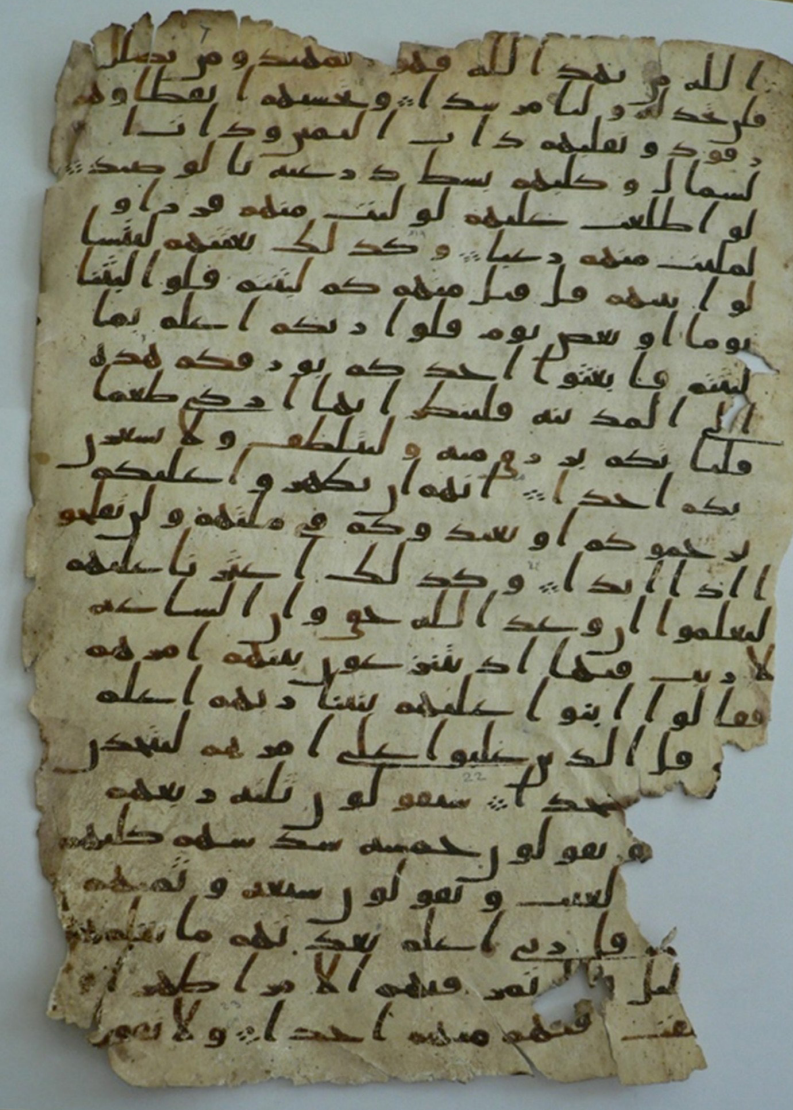 الله من يهد الله فهو المهتد ومن يضلل
فلن تجد له وليا مرشدا وتحسبهم ايقظا وهم
رقود ونقلبهم ذات اليمين وذات ا
لشمال وكلبهم بسط ذرعيه بالوصيد
لو اطلعت عليهم لوليت منهم فررا و
لملئت منهم رعبا وكذلك بعثنهم ليتسا
لوا بينهم قل قيل منهم كم لبثتم قلوا لبثنا
يوما او بعض يوم قلوا ربكم اعلم بما
لبثتم فابعثوا احدكم بورقكم هذه
الى المدينه فلينظر ايها ازكى طعما
فلياتكم برزق منه وليتلطف ولا يشعرن
بكم احدا انهم ان يظهروا عليكم
يرجموكم او يعيدوكم في ملتهم ولن تفلحو
ا اذا ابدا وكذلك اعثرنا عليهم
ليعلموا ان وعد الله حق وان الساعه
لا ريب فيها اذ يتنزعون بينهم امرهم
فقالوا ابنوا عليهم بنينا ربهم اعلم
قل الذين غلبوا على امرهم لنتخذن
مسجدا سيقولون ثلثه ربعهم
ويقولون خمسه سدسهم كلبهم
لغيب ويقولون سبعه وثمنهم
قل ربي اعلم بعدتهم ما يعلمهم
تمر فيهم الا مرا ظهرا
فيهم منهم احدا ولا تقولن